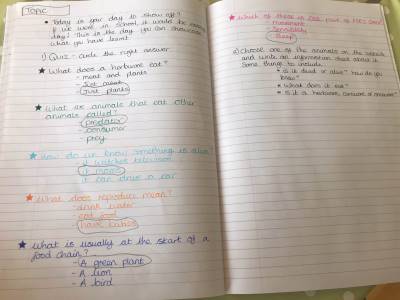 Topic
• Today is your day to show off!
If we were in school it would be
day! This is the day you can showcase
what you have learnt
1) Quiz - circle the right answer.
★ What does a herbivore eat?
- meat and plants
- Just meat
- Just plants
★ What are animals that eat other
animals called?
- predator
- consumer
- prey
★ How do we know something is alive?
- it watches television
- it moves
- it can drive a car
★ What does reproduce mean?
- drink water
- eat food
- have babies
★ What is usually at the start of a
food chain?
- A green plant
- A lion
- A bird
★ Which of these is not part of MRS GREN?
- Movement
- Sensitivity
- Sleep
2) Choose one of the animals on the
and write an information sheet about it.
Some things to include:
• Is it dead or alive? how do you
know?
• What does it eat?
• Is it a herbivore, carnivore or omnivore?